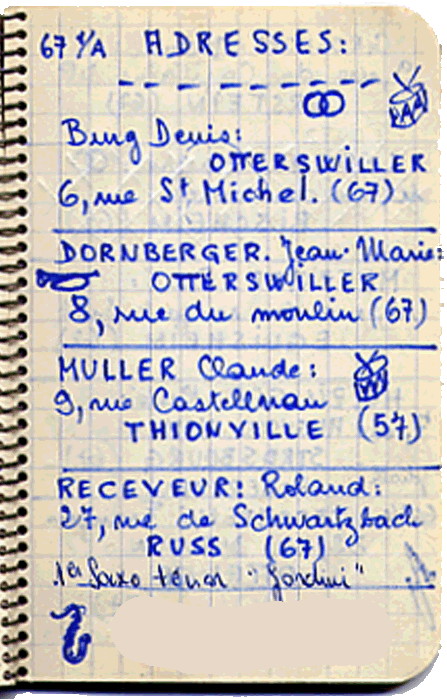 67 1/A ADRESSES:
Burg Denis:
OTTERSWILLER
6, rue St Michel. (67)
DORNBERGER. Jean-Marie
OTTERSWILLER
8, rue du moulin (67)
MULLER Claude:
9, rue Castelnau
THIONVILLE (57)
RECEVEUR: Roland:
27, rue de Schwartzbach
RUSS (67)
1er Saxo ténor "Jordini"